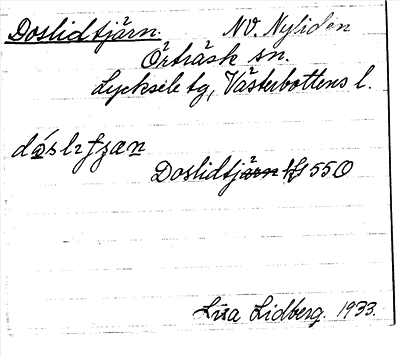 Doslidtjärn. NV. Nyliden
Örträsk sn.
Lycksele tg, Västerbottens l.
dóslıtjæn
Doslidtjärn 550
Lisa Lidberg. 1933.